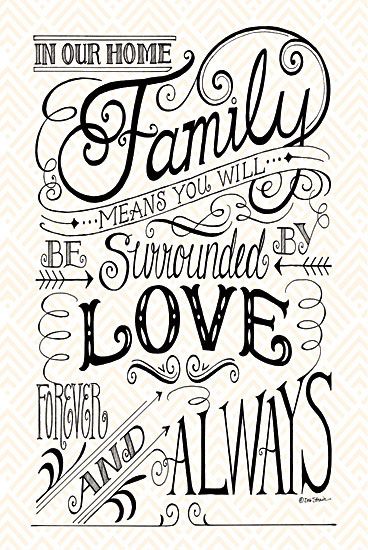 IN OUR HOME
Family
MEANS YOU WILL
BE Surrounded BY
LOVE
FOREVER
AND
ALWAYS